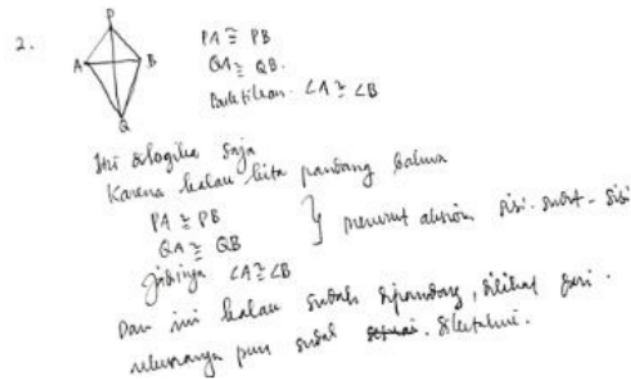 2.
P
A
B
Q
PA ≅ PB
QA ≅ QB.
Buktikan. ∠A ≅ ∠B
Ini dilogika saja
Karena kalau kita pandang bahwa
PA ≅ PB
QA ≅ QB
} menurut aksioma sisi-sudut-sisi
Jadinya ∠A ≅ ∠B
Dan ini kalau sudah dipandang, dilihat dari.
ukurannya pun sudah diketahui.